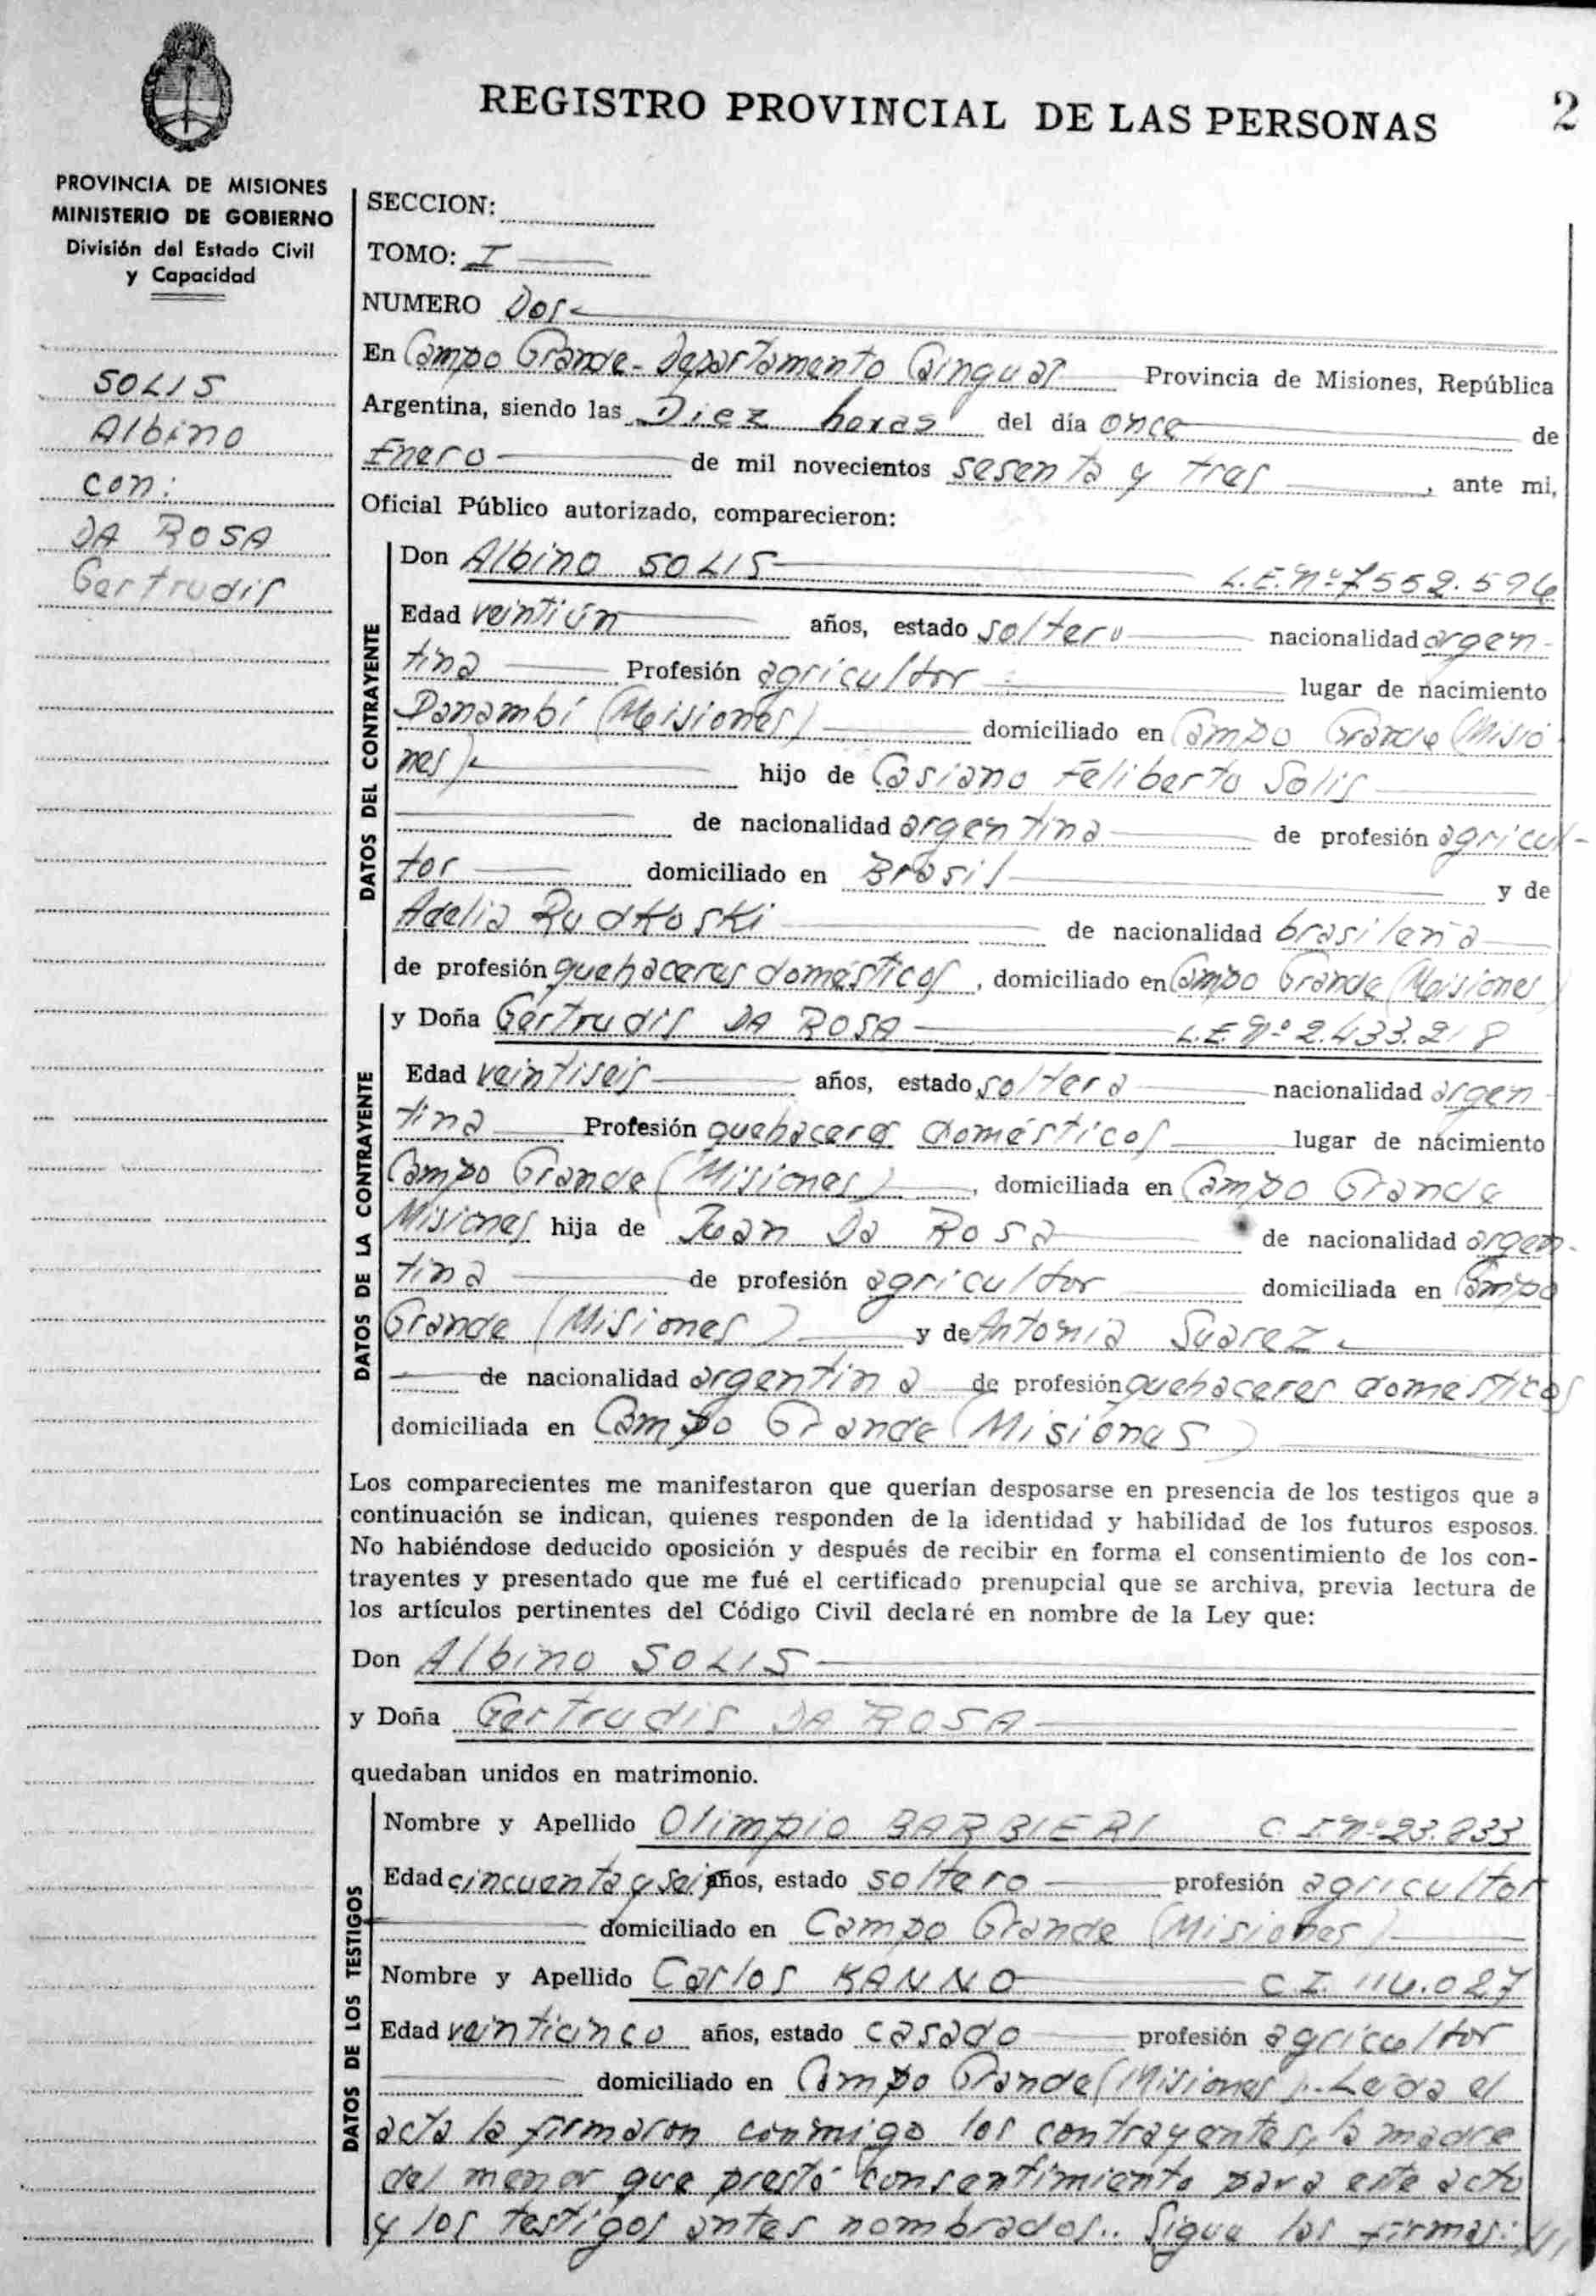 REGISTRO PROVINCIAL DE LAS PERSONAS
2
PROVINCIA DE MISIONES
MINISTERIO DE GOBIERNO
División del Estado Civil
y Capacidad
SOLIS
Albino
con:
DA ROSA
Gertrudis
SECCION:
TOMO: I
NUMERO Dos
En Campo Grande - Departamento Cainguás Provincia de Misiones, República
Argentina, siendo las Diez horas del día once de
Enero de mil novecientos sesenta y tres, ante mi,
Oficial Público autorizado, comparecieron:
DATOS DEL CONTRAYENTE
Don Albino SOLIS L.E. Nº 7552.594
Edad veintiún años, estado soltero nacionalidad argen-
tina Profesión agricultor lugar de nacimiento
Panambí (Misiones) domiciliado en Campo Grande (Misio
nes) hijo de Casiano Feliberto Solis
de nacionalidad argentina de profesión agricul-
tor domiciliado en Brasil y de
Adelia Rudkoski de nacionalidad brasileña
de profesión quehaceres domésticos, domiciliado en Campo Grande (Misiones)
DATOS DE LA CONTRAYENTE
y Doña Gertrudis DA ROSA L.E. Nº 2.433.218
Edad veintiseis años, estado soltera nacionalidad argen-
tina Profesión quehaceres domésticos lugar de nacimiento
Campo Grande (Misiones), domiciliada en Campo Grande
Misiones hija de Juan Da Rosa de nacionalidad argen-
tina de profesión agricultor domiciliada en Campo
Grande (Misiones) y de Antonia Suarez
de nacionalidad argentina de profesión quehaceres domesticos
domiciliada en Campo Grande (Misiones)
Los comparecientes me manifestaron que querían desposarse en presencia de los testigos que a
continuación se indican, quienes responden de la identidad y habilidad de los futuros esposos.
No habiéndose deducido oposición y después de recibir en forma el consentimiento de los con-
trayentes y presentado que me fué el certificado prenupcial que se archiva, previa lectura de
los artículos pertinentes del Código Civil declaré en nombre de la Ley que:
Don Albino SOLIS
y Doña Gertrudis DA ROSA
quedaban unidos en matrimonio.
DATOS DE LOS TESTIGOS
Nombre y Apellido Olimpio BARBIERI C.I. Nº 23.833
Edad cincuenta y seis años, estado soltero profesión agricultor
domiciliado en Campo Grande (Misiones)
Nombre y Apellido Carlos KANNO C.I. 114.027
Edad veinticinco años, estado casado profesión agricultor
domiciliado en Campo Grande (Misiones).. Leída el
acta la firmaron conmigo los contrayentes, la madre
del menor que prestó consentimiento para este acto
y los testigos antes nombrados.. Sigue las firmas: